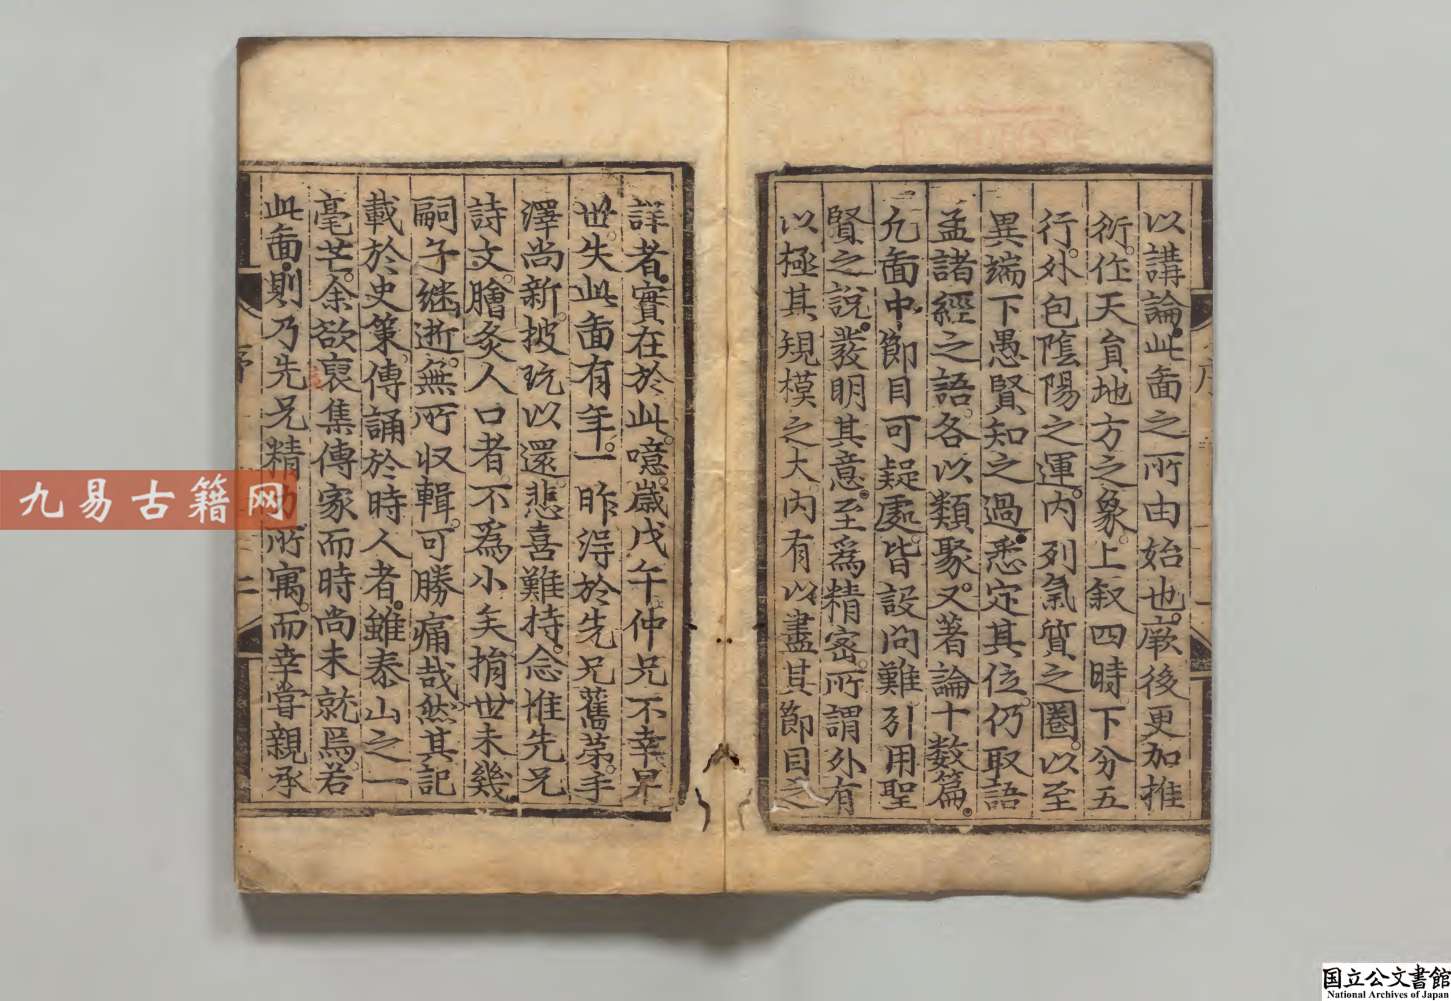 以講論此圖之所由始也厥後更加推
衍作天貟地方之象上叙四時下分五
行外包陰陽之運内列氣質之圈以至
異端下愚賢知之過悉定其位仍取語
孟諸經之語各以類聚又著論十數篇
凢圖中節目可疑處皆設问難引用聖
賢之說發明其意至爲精密所謂外有
以極其規模之大内有以盡其節目之
詳者實在於此噫嵗戊午仲兄不幸早
世失此圖有年一昨得於先兄舊第手
澤尚新披玩以還悲喜難持念惟先兄
詩文膾炙人口者不爲小矣捐世未幾
嗣子継逝無所収輯可勝痛哉然其記
載於史筞傳誦於時人者雖泰山之一
毫芒余欲裒集傳家而時尚未就焉若
此圖則乃先兄精力所寓而幸嘗親承
序
二
九易古籍网
国立公文書館
National Archives of Japan